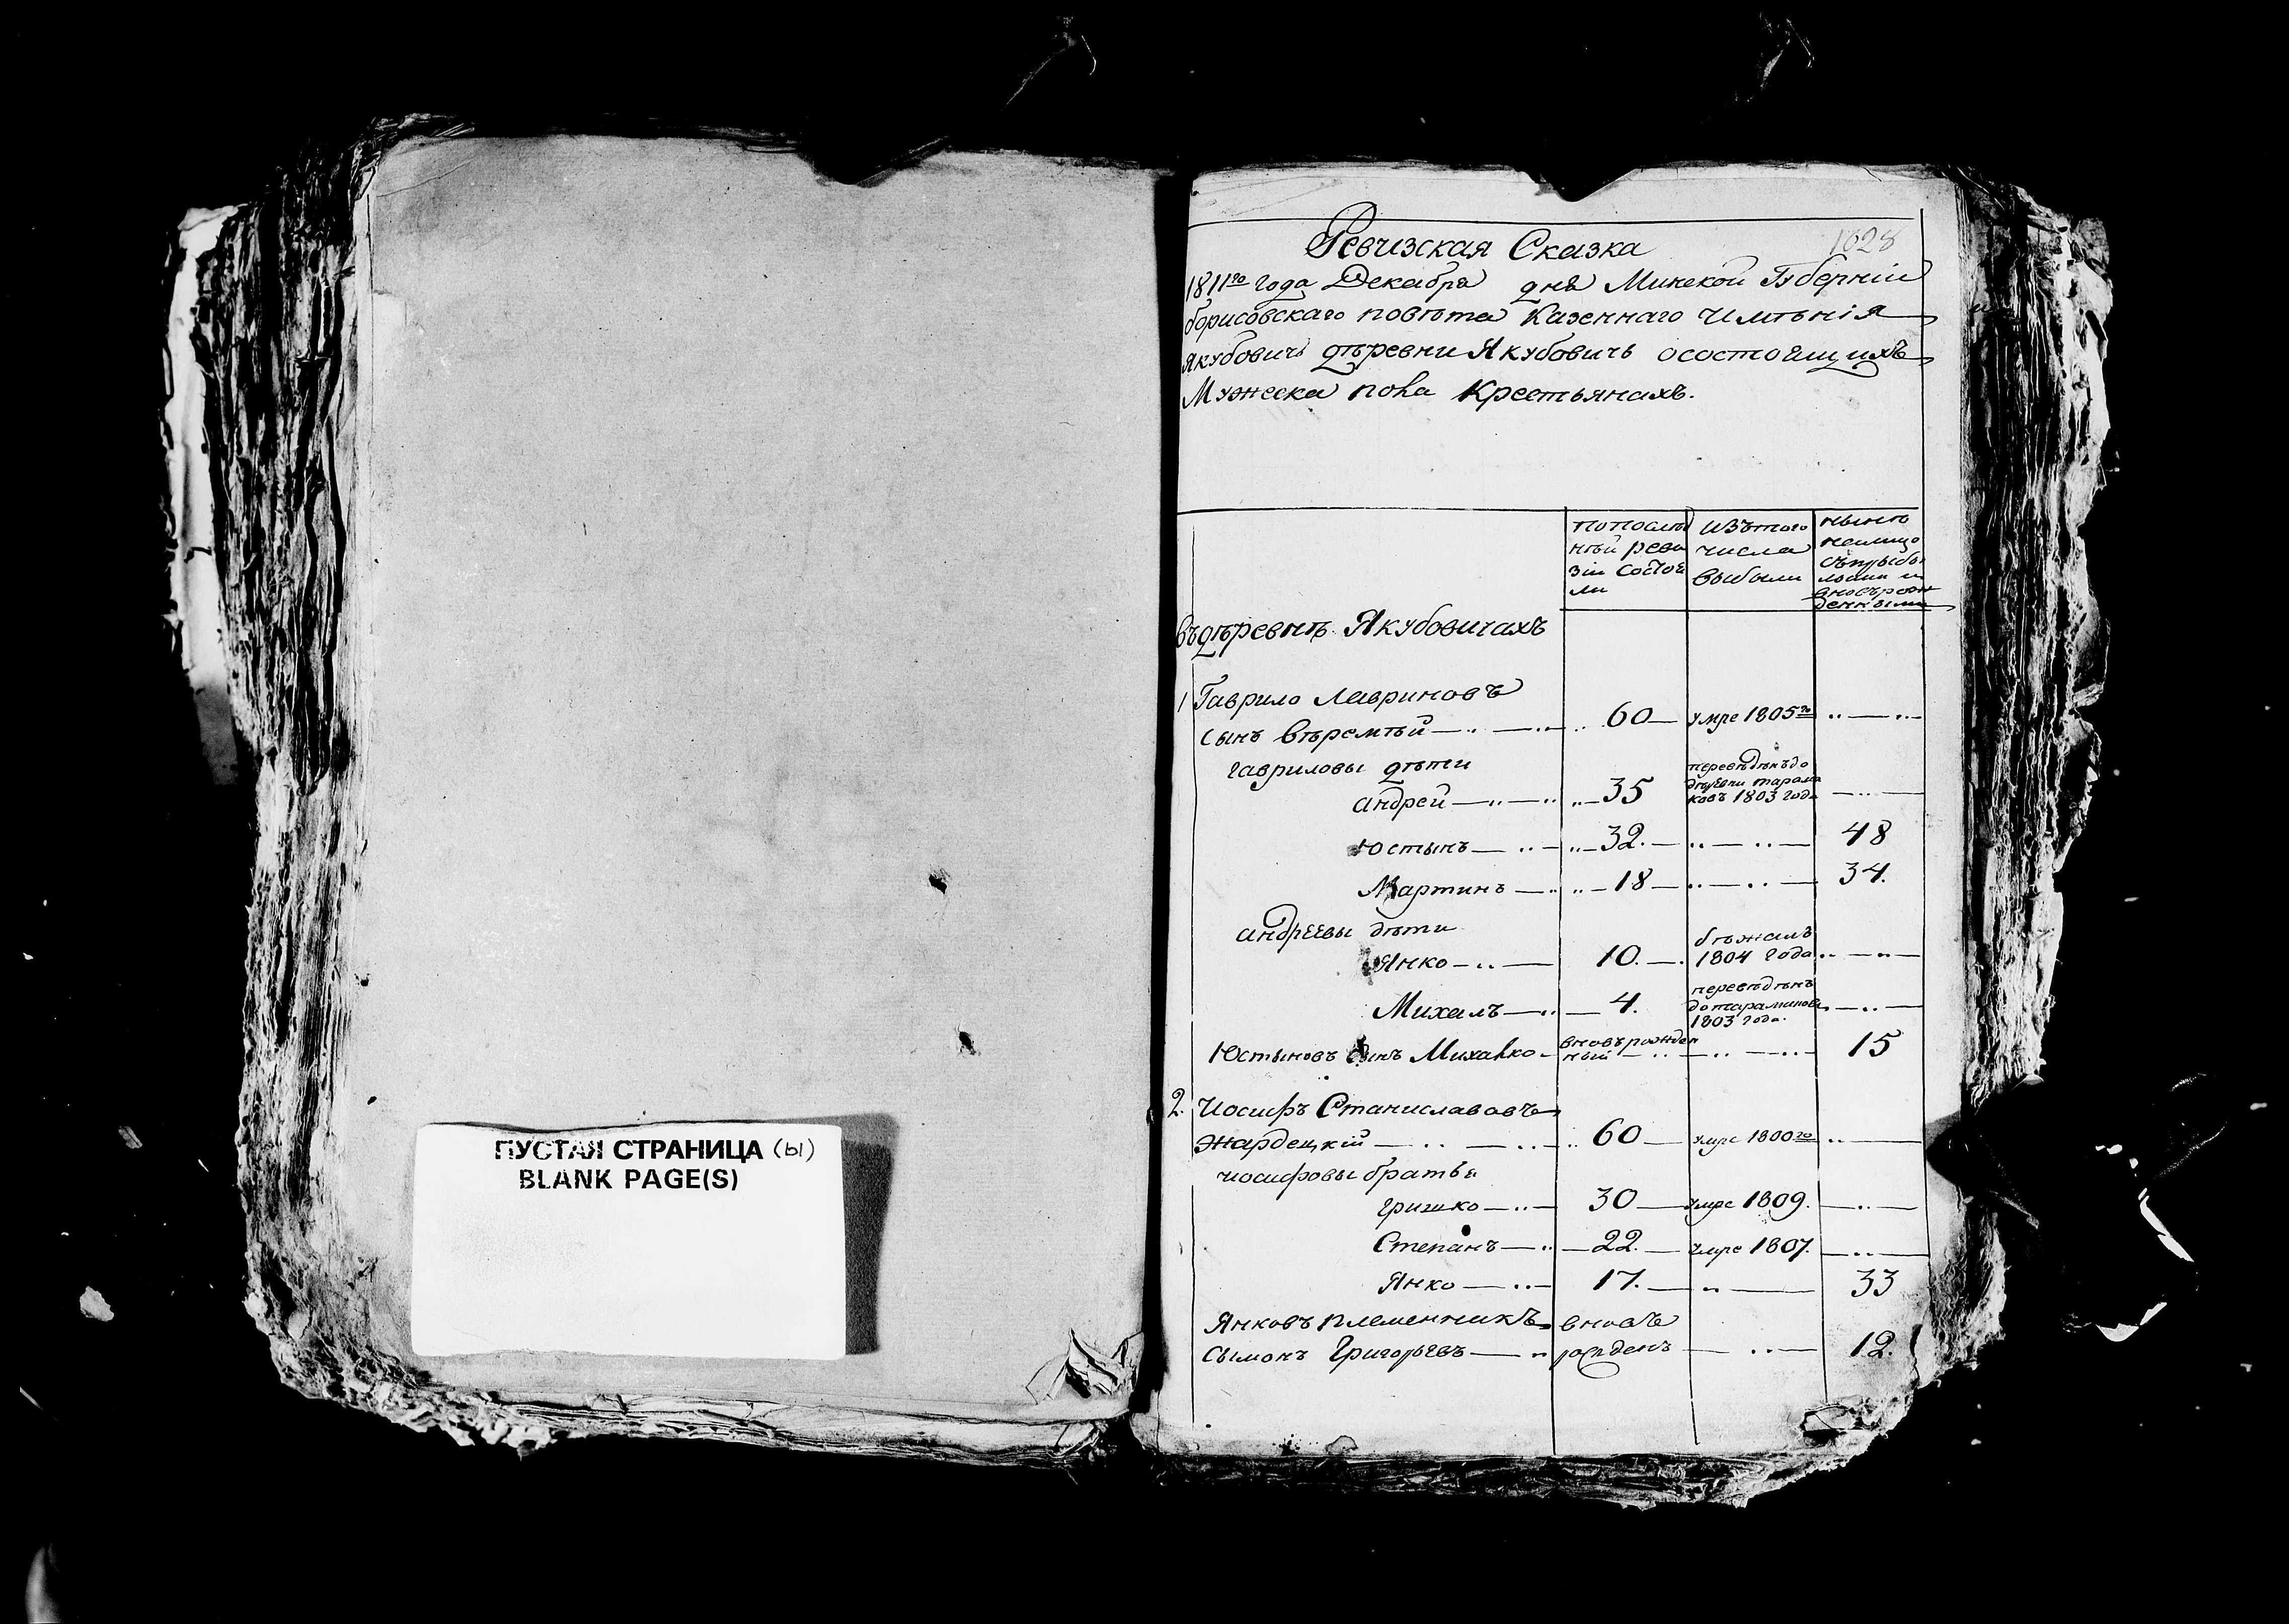 ПУСТАЯ СТРАНИЦА (ы)
BLANK PAGE(S)
1028
Ревизская Сказка
1811го года Декабря дня Минской Губерніи
борисовскаго повѣта Казеннаго Имѣнія
Якубовичь дѣревни Якубовичь осостоящихъ
Мужеска пола Крестьянахъ.
попослѣд
ней реви
зіи состоя
ли
изътого
числа
выбыли
нынѣ
налицо
съприбы
лыми и
вновьрож
денными
въдѣревнѣ Якубовичахъ
1 Гаврило Лавриновъ
сынъ Вѣремѣй — 60 — умре 1805го
гавриловы дѣти
андрей — 35 переведѣнъ до дѣревни тарама ковъ 1803 года
Юстынъ — 32. — 48
Мартинъ — 18 — 34.
андрѣевы дѣти
Янко — 10. — бѣжалъ 1804 года
Михалъ — 4. переведѣнъ
1803 года.
Юстыновъ сынъ Михалко — вновърожден ный — 15
2. Иосифъ Станиславовъ
Жардецкій — 60 — умре 1800го
иосифовы братья
гришко — 30 — умре 1809.
Степанъ — 22. — умре 1807.
Янко — 17. — 33
Янковъ племенникъ вновь
Сымонъ Григорьевъ — рожденъ — 12.